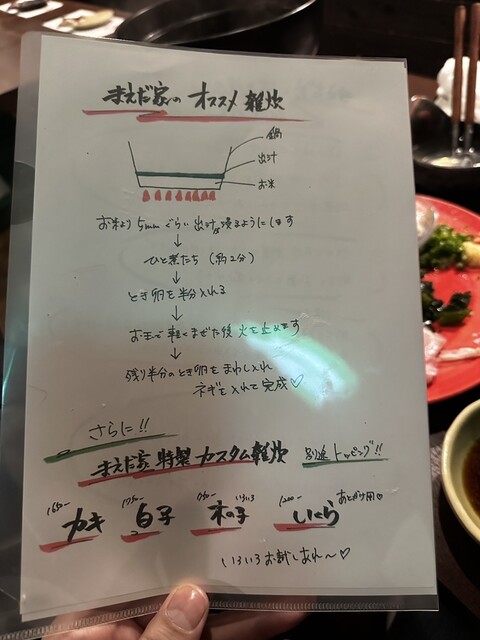 まえだ家の オススメ 雑炊
鍋
出汁
お米
お米より 5mm ぐらい 出汁が浸るようにします
↓
ひと煮たち (約2分)
↓
とき卵を半分入れる
↓
お玉で軽くまぜた後 火を止めます
↓
残り半分のとき卵をまわし入れ
ネギを入れて完成♡
さらに!!
まえだ家 特製 カスタム雑炊 別途トッピング!!
カキ 白子 木の子 いろいろ いくら あとがけ用
いろいろお試しあれ〜♡